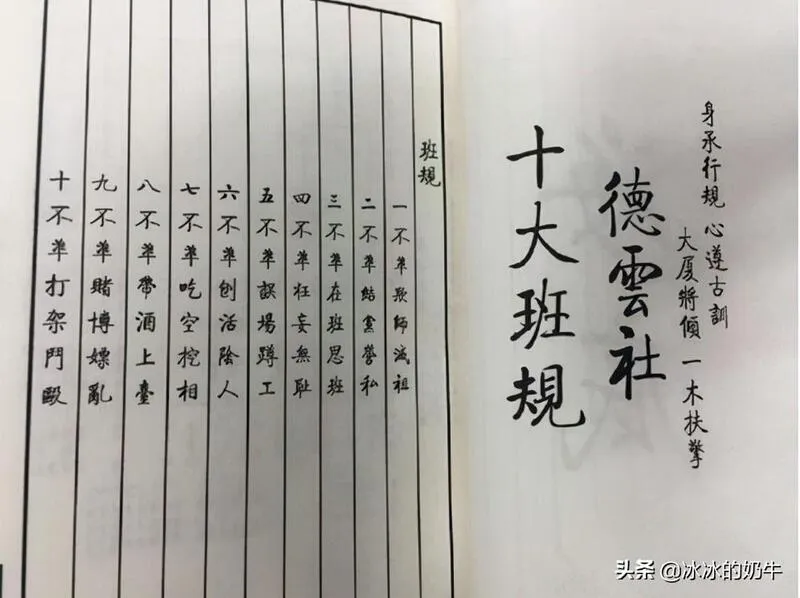 身承行規 心遵古訓
大厦將傾 一木扶擎
德雲社
十大班規
班規
一不準欺師滅祖
二不準結黨營私
三不準在班思班
四不準狂妄無耻
五不準誤場蹲工
六不準刨活陰人
七不準吃空挖相
八不準帶酒上臺
九不準賭博嫖亂
十不準打架鬥毆
头条 @冰冰的奶牛